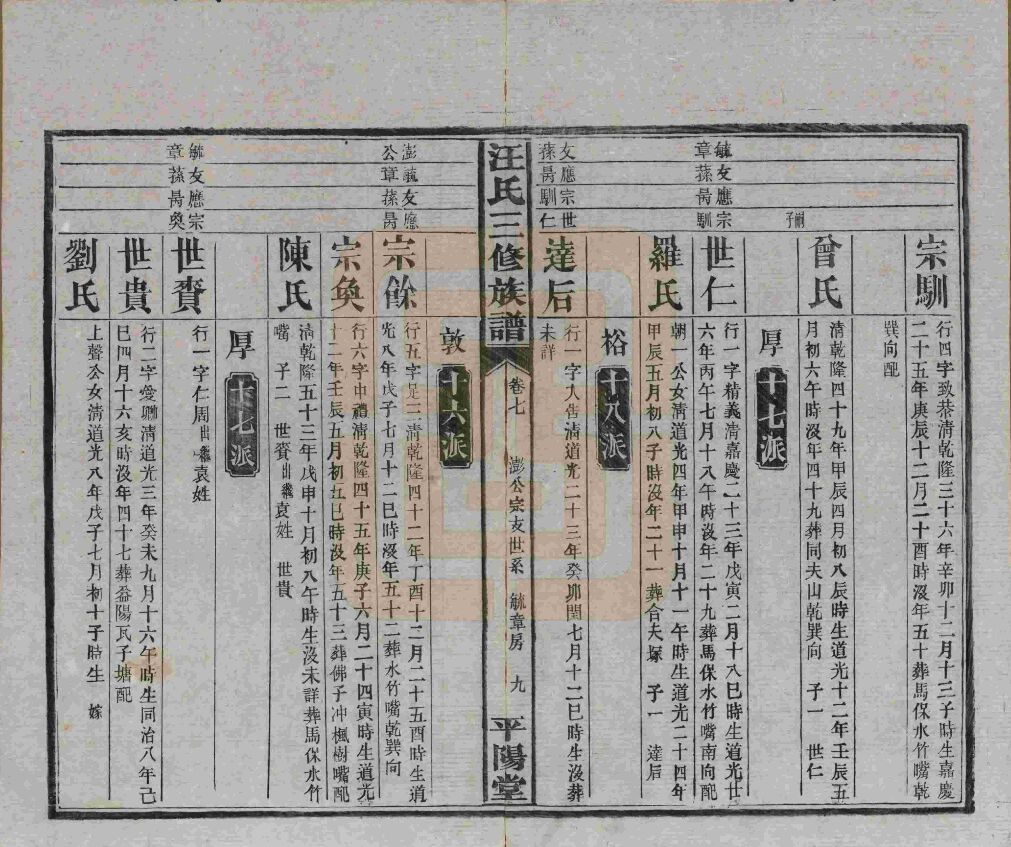 宗馴
行四字致恭清乾隆三十六年辛卯十二月十三子時生嘉慶
二十五年庚辰十二月二十酉時沒年五十葬馬保水竹嘴乾
巽向配
曾氏
清乾隆四十九年甲辰四月初八辰時生道光十二年壬辰五
月初六午時沒年四十九葬同夫山乾巽向 子一 世仁
嗣子
厚 十七派
毓友應宗
章蓀昺馴
世仁
行一字精義清嘉慶二十三年戊寅二月十八巳時生道光廿
六年丙午七月十八午時沒年二十九葬馬保水竹嘴南向配
羅氏
朝一公女清道光四年甲申十月十一午時生道光二十四年
甲辰五月初八子時沒年二十一葬合夫塚 子一 達后
裕 十八派
友應宗世
蓀昺馴仁
達后
行一字人告清道光二十三年癸卯閏七月十二巳時生沒葬
未詳
汪氏三修族譜
卷七 澎公宗支世系 毓章房 九
平陽堂
敦 十六派
澎毓友應
公章蓀昺
宗餘
行五字是三清乾隆四十二年丁酉十二月二十五酉時生道
光八年戊子七月十二巳時沒年五十二葬水竹嘴乾巽向
宗奐
行六字中禮清乾隆四十五年庚子六月二十四寅時生道光
十二年壬辰五月初五巳時沒年五十三葬佛子冲楓樹嘴配
陳氏
清乾隆五十三年戊申十月初八午時生沒未詳葬馬保水竹
嘴 子二 世賚出繼袁姓 世貴
厚 十七派
毓友應宗
章蓀昺奐
世賚
行一字仁周出繼袁姓
世貴
行二字愛聯清道光三年癸未九月十六午時生同治八年己
巳四月十六亥時沒年四十七葬益陽瓦子塘配
劉氏
上聲公女清道光八年戊子七月初十子時生 嫁